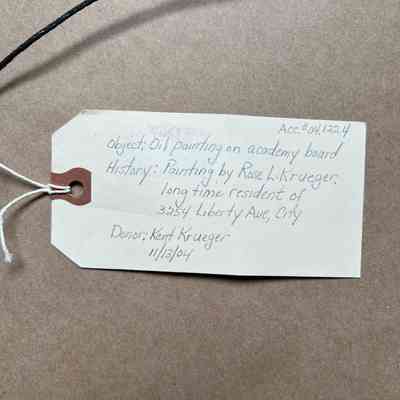 Acc.#04.122.4
Object: Oil painting on academy board
History: Painting by Rose L. Krueger,
long time resident of
3254 Liberty Ave, City
Donor: Kent Krueger
11/13/04